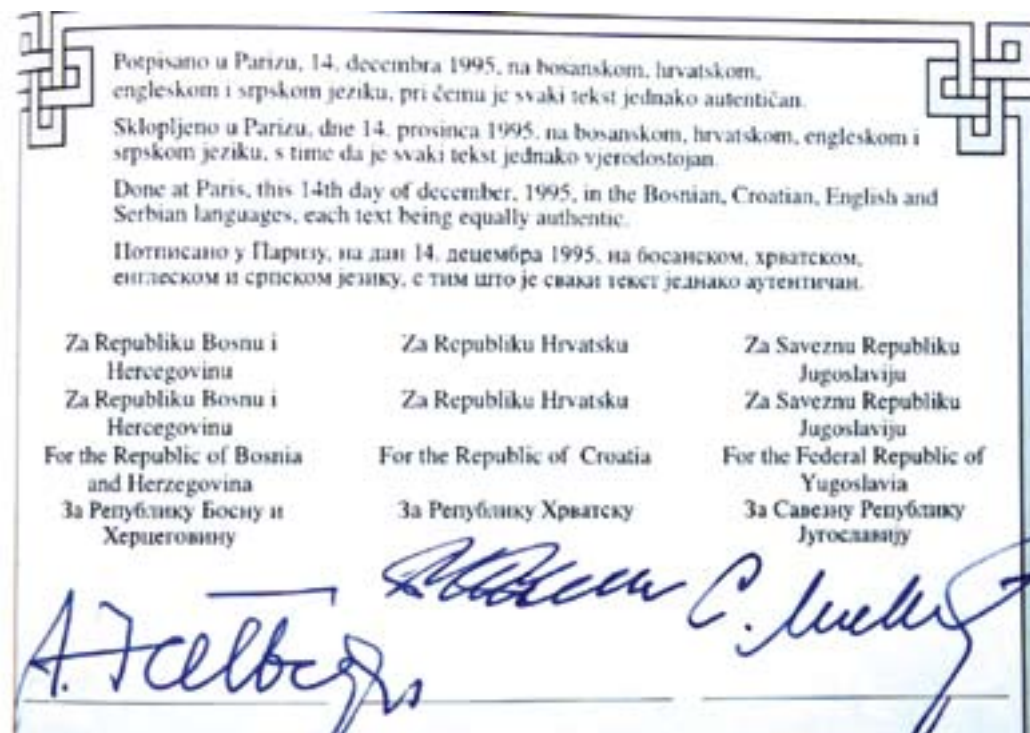 Potpisano u Parizu, 14. decembra 1995. na bosanskom, hrvatskom,
engleskom i srpskom jeziku, pri čemu je svaki tekst jednako autentičan.
Sklopljeno u Parizu, dne 14. prosinca 1995. na bosanskom, hrvatskom, engleskom i
srpskom jeziku, s time da je svaki tekst jednako vjerodostojan.
Done at Paris, this 14th day of december, 1995, in the Bosnian, Croatian, English and
Serbian languages, each text being equally authentic.
Потписано у Паризу, на дан 14. децембра 1995. на босанском, хрватском,
енглеском и српском језику, с тим што је сваки текст једнако аутентичан.
Za Republiku Bosnu i
Hercegovinu
Za Republiku Bosnu i
Hercegovinu
For the Republic of Bosnia
and Herzegovina
За Републику Босну и
Херцеговину
Za Republiku Hrvatsku
Za Republiku Hrvatsku
For the Republic of Croatia
За Републику Хрватску
Za Saveznu Republiku
Jugoslaviju
Za Saveznu Republiku
Jugoslaviju
For the Federal Republic of
Yugoslavia
За Савезну Републику
Југославију